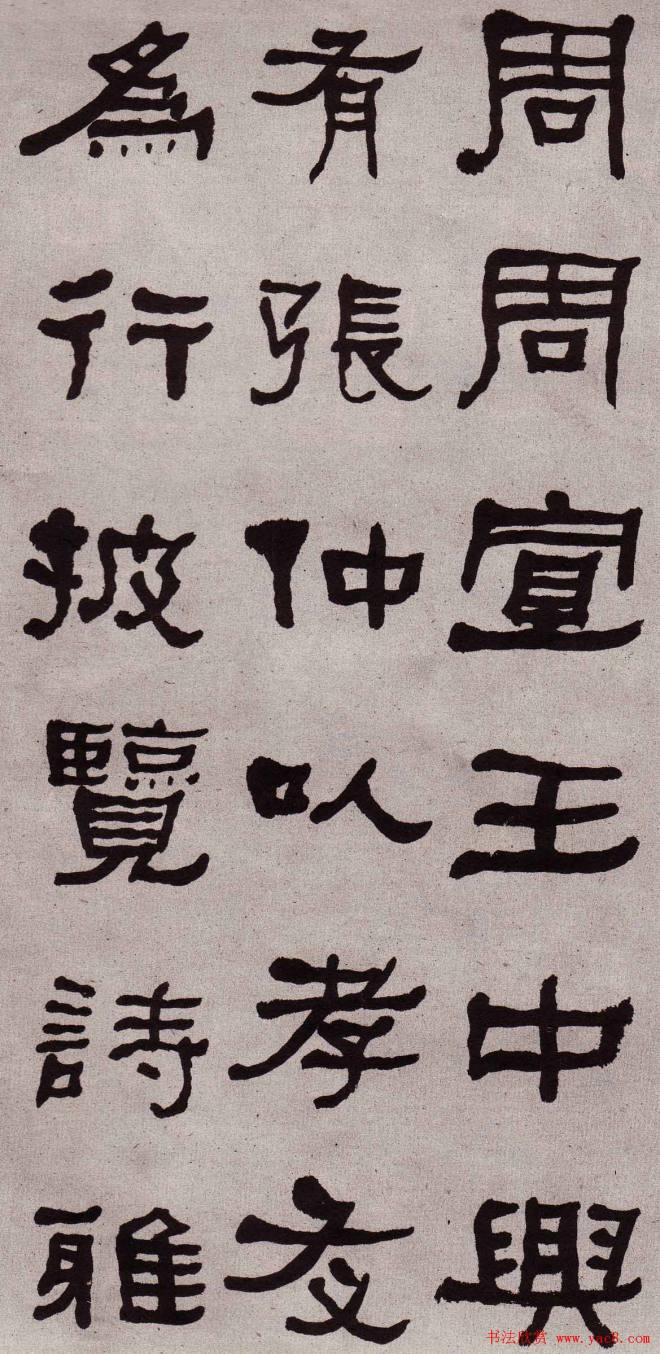 周周宣王中興
有張仲以孝友
為行披覽詩雅
书法欣赏 www.yac8.com